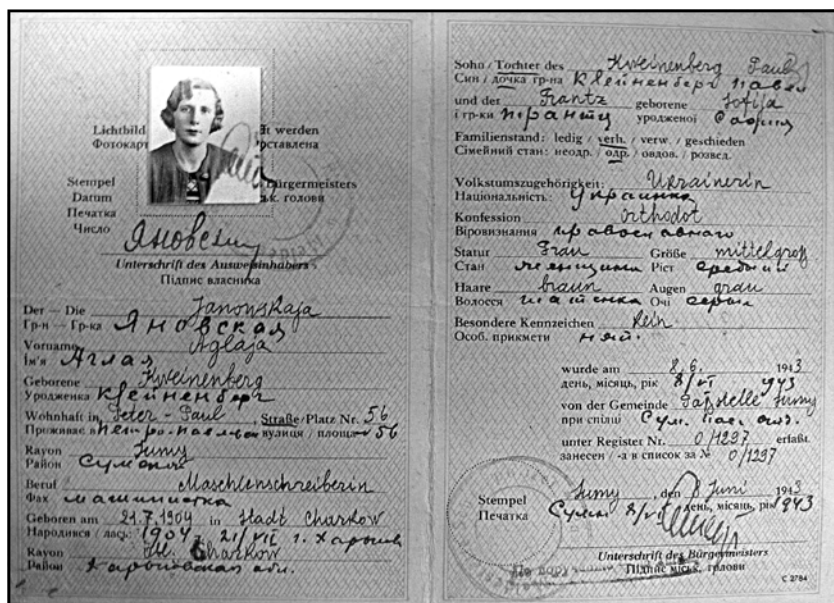 Lichtbild
Фотокарт
werden
оставлена
Stempel
Datum
Печатка
Число
Bürgermeisters
ськ. голови
Unterschrift des Ausweisinhabers
Підпис власника
Der — Die Janowskaja
Гр-н — Гр-ка Яновская
Vorname Aglaja
Ім'я Аглая
Geborene Kweinenberg
Уродженка Клейненберг
Wohnhaft in Peter-Paul Straße/Platz Nr. 56
Проживає в вулиця / площа 56
Rayon Sumy
Район
Beruf Maschlenschreiberin
Фах машинистка
Geboren am 21.7.1904 in Stadt Charkow
Народився / лась: 1904 21/VII г. Харьков
Rayon Charkow
Район Харьковская обл.
Sohn / Tochter des Kweinenberg Paul
Син / дочка гр-на Клейненберг Павел
und der Frantz geborene Sofija
і гр-ки Франтц уродженої София
Familienstand: ledig / verh. / verw. / geschieden
Сімейний стан: неодр. / одр. / овдов. / розвед.
Volkstumszugehörigkeit: Ukrainerin
Національність: Украинка
Konfession orthodot
Віровизнання православного
Statur Frau Größe mittelgroß
Стан женщина Ріст средний
Haare braun Augen grau
Волосся шатенка Очі серые
Besondere Kennzeichen Kein.
Особ. прикмети
wurde am 8.6. 1943
день, місяць, рік 8/VI 1943
von der Gemeinde Paßstelle Sumy
при спілці Сум.
unter Register Nr. 0/1297 erfaßt.
занесен / -а в список за № 0/1297
Stempel Sumy, den 8 Juni 1943
Печатка Сумы 8/VI день, місяць, рік 1943
Unterschrift des Bürgermeisters
Підпис міськ. голови
C 2784